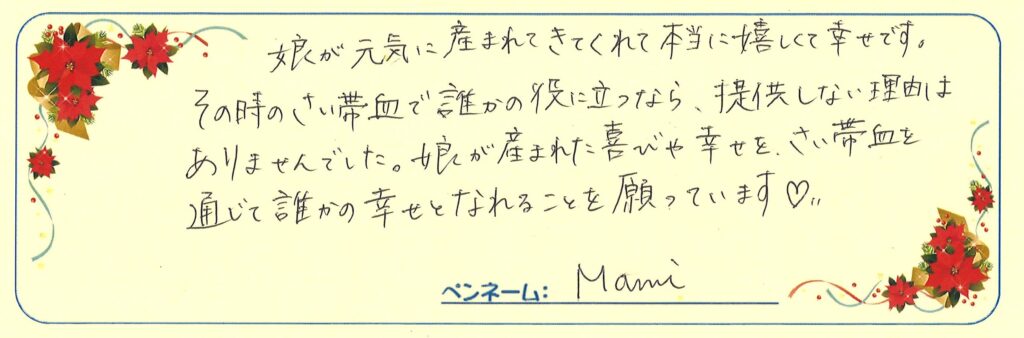 娘が元気に産まれてきてくれて本当に嬉しくて幸せです。
その時のさい帯血で誰かの役に立つなら、提供しない理由は
ありませんでした。娘が産まれた喜びや幸せを、さい帯血を
通じて誰かの幸せとなれることを願っています♡〃
ペンネーム: Mami